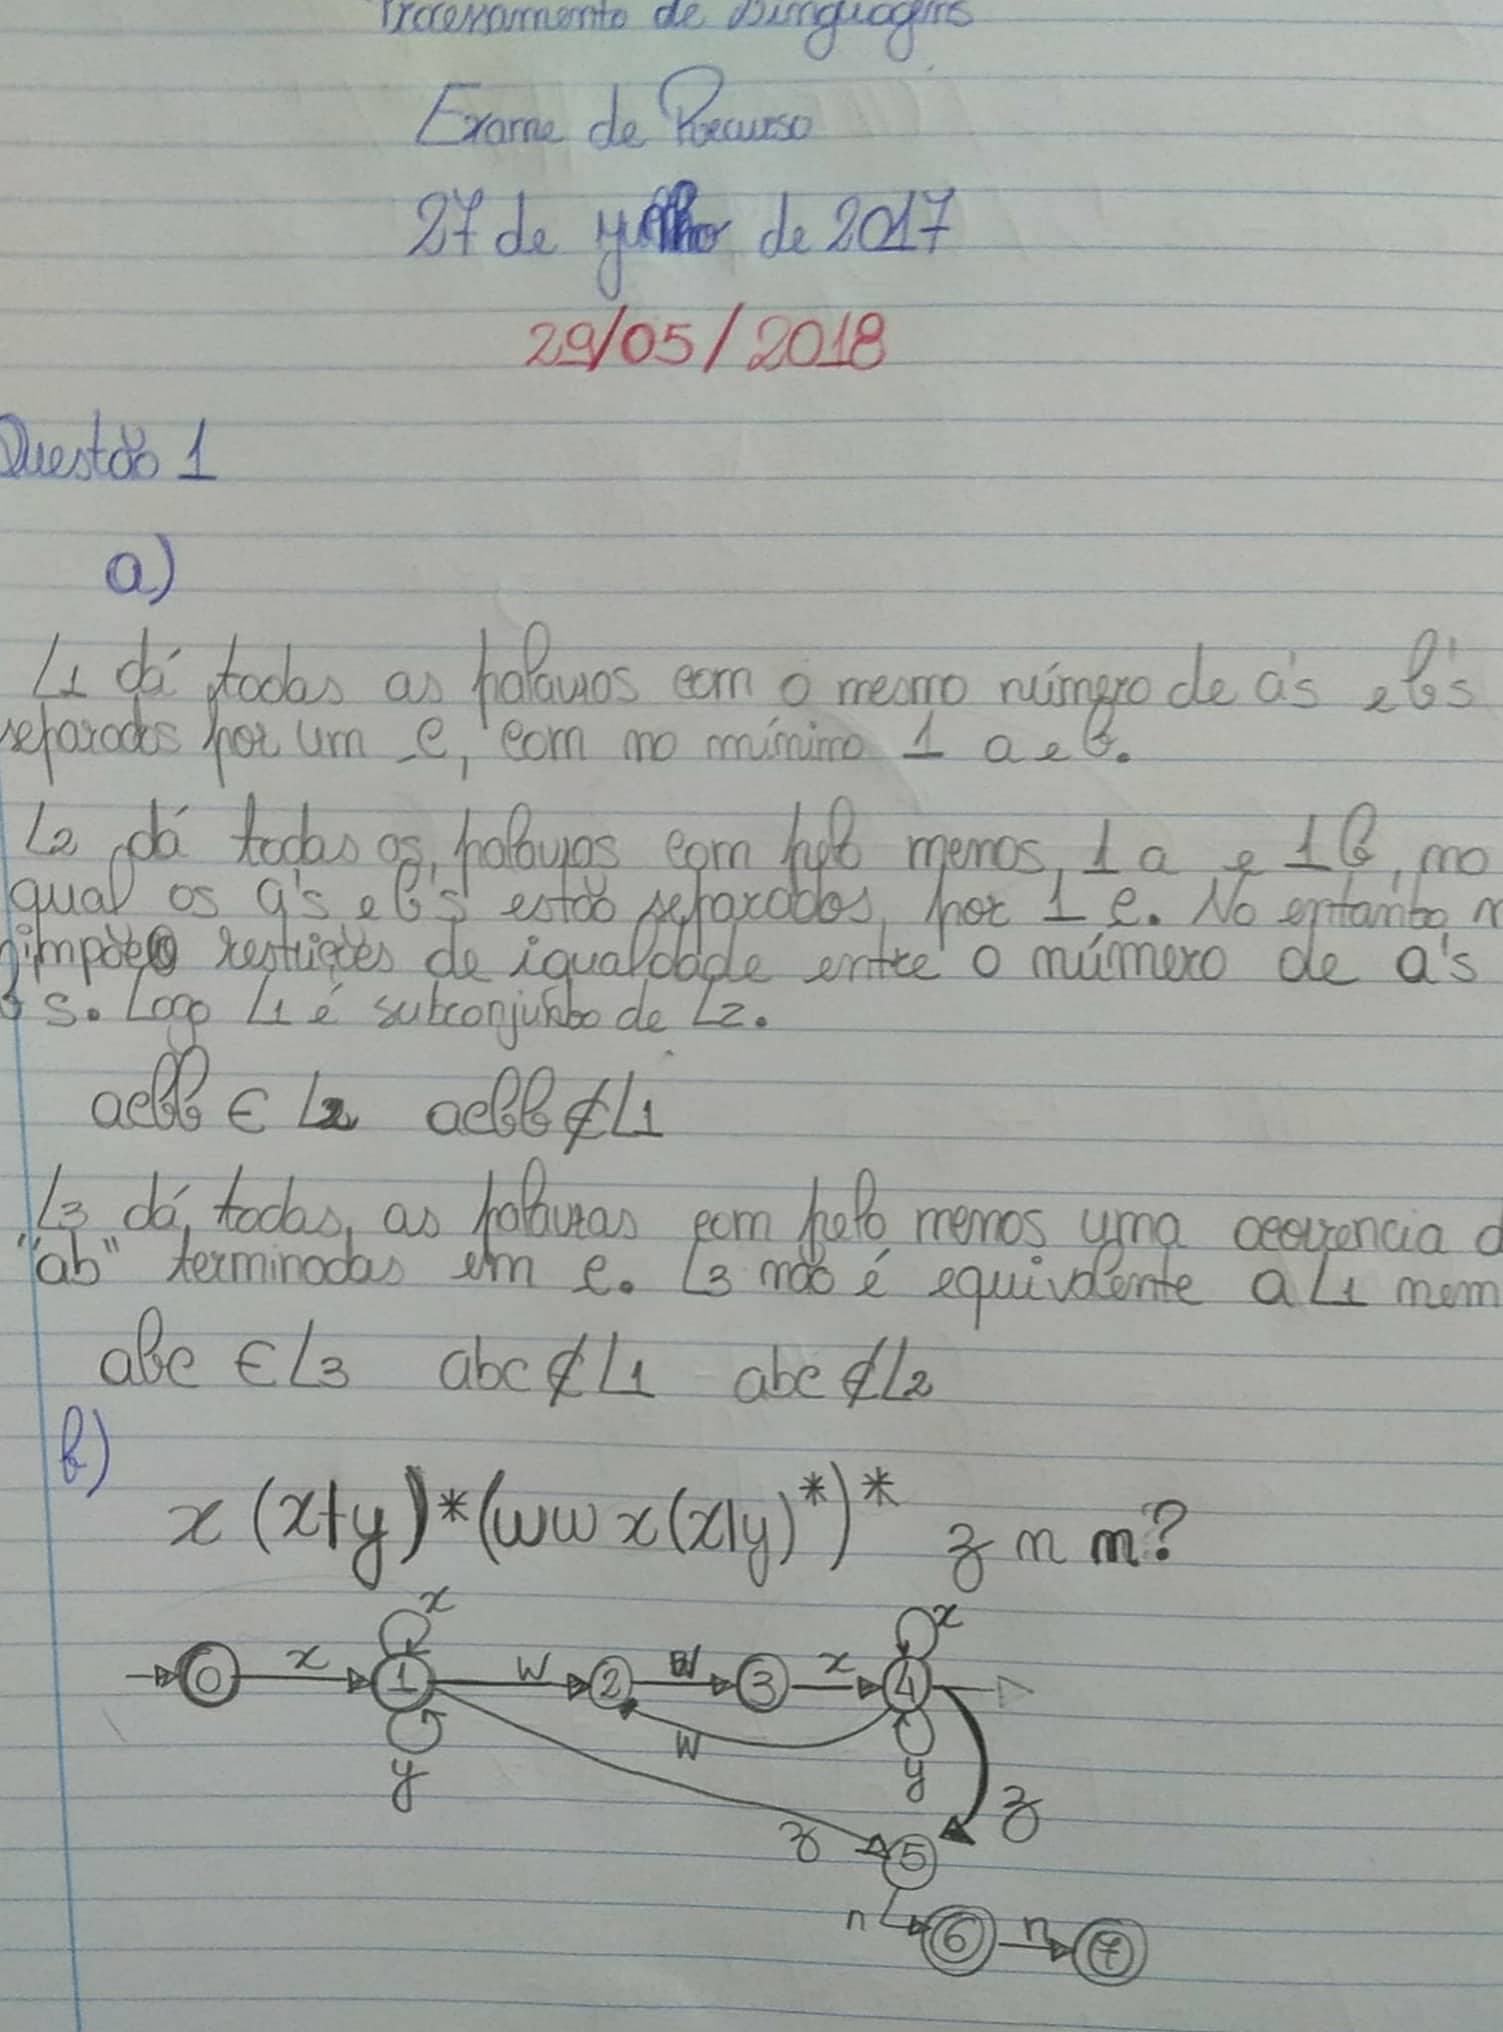 Processamento de Linguagens
Exame de Recurso
27 de junho de 2017
29/05/2018
Questão 1
a)
L1 dá todas as palavras com o mesmo número de a's e b's
separados por um c, com no mínimo 1 a e b.
L2 dá todas as palavras com pelo menos 1 a e 1 b, no
qual os a's e b's estão separados por 1 c. No entanto n
impõe restrições de igualdade entre o número de a's
b's. Logo L1 é subconjunto de L2.
acbb ∈ L2 acbb ∉ L1
L3 dá todas as palavras com pelo menos uma ocorrencia d
"ab" terminadas em c. L3 não é equivalente a L1 nem
abc ∈ L3 abc ∉ L1 abc ∉ L2
b)
x (x+y)*(wwx(x|y)*)* z n n?
x x
0 x 1 w 2 w 3 x 4
w
y y
z z
5
n 6 n 7